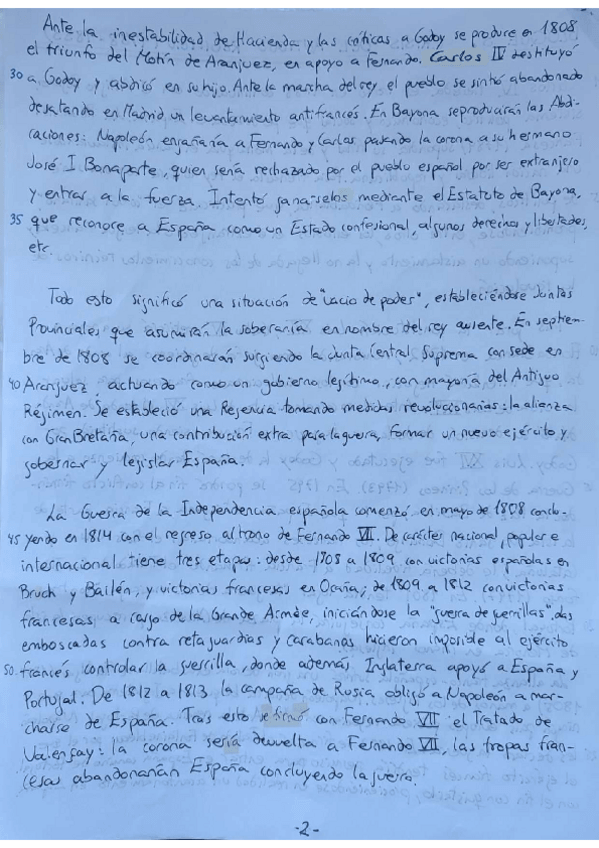 Ante la inestabilidad de Hacienda y las críticas a Godoy se produce en 1808
el triunfo del Motín de Aranjuez, en apoyo a Fernando. Carlos IV destituyó
30 a Godoy y abdicó en su hijo. Ante la marcha del rey, el pueblo se sintió abandonado
desatando en Madrid un levantamiento antifrancés. En Bayona se producirán las Abdi-
caciones: Napoleón engañaría a Fernando y Carlos pasando la corona a su hermano
José I Bonaparte, quien sería rechazado por el pueblo español por ser extranjero
y entrar a la fuerza. Intentó ganárselos mediante el Estatuto de Bayona,
35 que reconoce a España como un Estado confesional, algunos derechos y libertades,
etc.
Todo esto significó una situación de "vacio de poder", estableciéndose Juntas
Provinciales que asumirán la soberanía en nombre del rey ausente. En septiem-
bre de 1808 se coordinarán surgiendo la Junta Central Suprema con sede en
40 Aranjuez actuando como un gobierno legítimo, con mayoría del Antiguo
Régimen. Se estableció una Regencia tomando medidas revolucionarias: la alianza
con Gran Bretaña, una contribución extra para la guerra, formar un nuevo ejército y
gobernar y legislar España.
La Guerra de la Independencia española comenzó en mayo de 1808 conclu-
45 yendo en 1814 con el regreso al trono de Fernando VII. De carácter nacional, popular e
internacional tiene tres etapas: desde 1808 a 1809 con victorias españolas en
Bruch y Bailén, y victorias francesas en Ocaña; de 1809 a 1812 con victorias
francesas a cargo de la Grande Armée, iniciándose la "guerra de guerrillas". Las
emboscadas contra retaguardias y carabanas hicieron imposible al ejército
50 francés controlar la guerrilla, donde además Inglaterra apoyó a España y
Portugal. De 1812 a 1813 la campaña de Rusia obligó a Napoleón a mar-
charse de España. Tras esto se firmó con Fernando VII el Tratado de
Valençay: la corona sería devuelta a Fernando VII, las tropas fran-
cesas abandonarían España concluyendo la guerra.
-2-